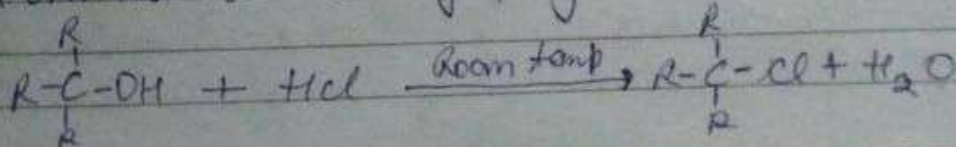 R R
R-C-OH + HCl Room temp → R-C-Cl + H₂O
R R